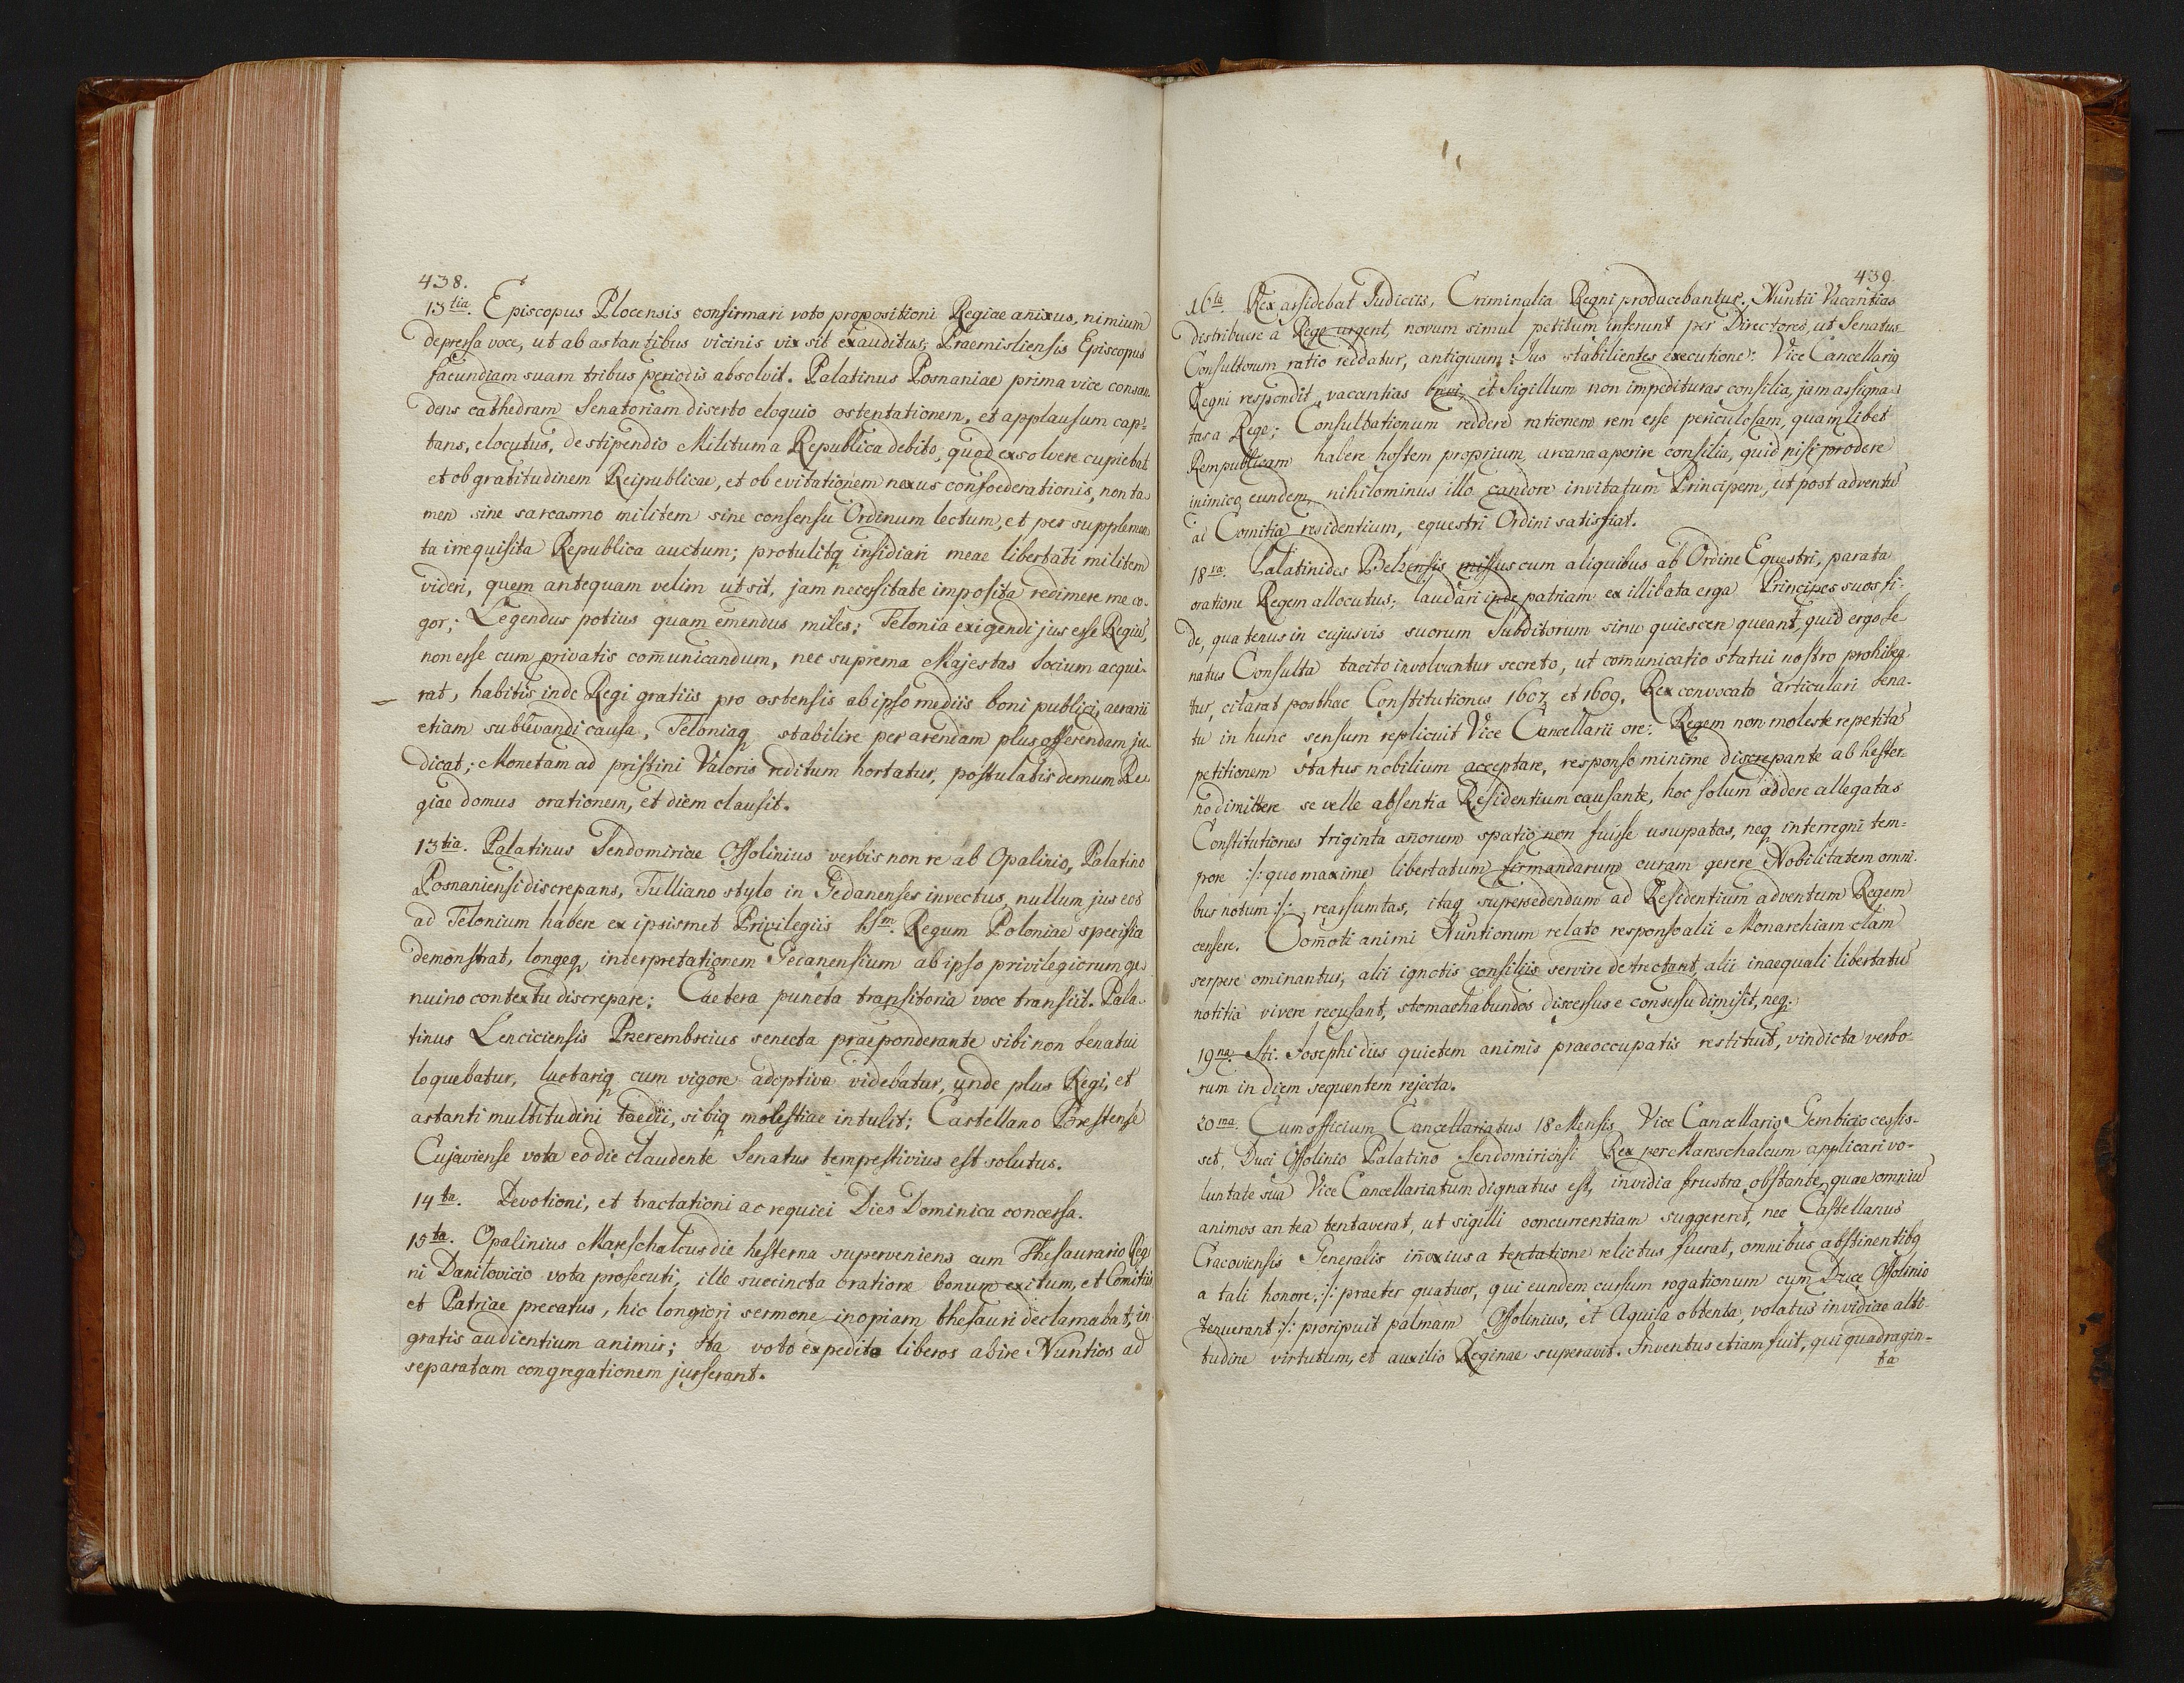 438.
13tia. Episcopus Plocensis confirmari voto propositioni Regiae anixus, nimium
depressa voce, ut ab astantibus vicinis vix sit exauditus; Praemisliensis Episcopus
facundiam suam tribus periodis absolvit. Palatinus Posnaniae prima vice conscen-
dens cathedram Senatoriam diserto eloquio ostentationem, et applausum cap-
tans, elocutus, de stipendio Militum a Republica debito, quod exsolvere cupiebat
et ob gratitudinem Reipublicae, et ob evitationem nexus confoederationis, non ta-
men sine sarcasmo militem sine consensu Ordinum lectum, et per supplemen
ta irrequisita Republica auctum; protulitq insidiari meae libertati militem
videri, quem antequam velim ut sit, jam necessitate imposita redimere me co-
gor; Legendus potius quam emendus miles; Telonia exigendi jus esse Regiu,
non esse cum privatis com̄unicandum, nec suprema Majestas Socium acqui-
rat, habitis inde Regi gratiis pro ostensis ab ipso mediis boni publici, aerarii
etiam sublevandi causa, Teloniaq stabilire per arendam plus offerendam ju-
dicat; Monetam ad pristini Valoris reditum hortatur, postulatis demum Re-
giae domus orationem, et diem clausit.
13tia. Palatinus Sendomiriae Ossolinius verbis non re ab Opalinio, Palatino
Posnaniensi discrepans, Tulliano stylo in Gedanenses invectus, nullum jus eos
ad Telonium habere ex ipsismet Privilegiis SSm. Regum Poloniae specifica
demonstrat, longeq interpretationem Gedanensium ab ipso privilegiorum ge-
nuino contextu discrepare; Caetera puncta transitoria voce transiit. Pala-
tinus Lenciciensis Przerembscius senecta praeponderante sibi non Senatui
loquebatur, luctariq cum vigore adoptiva videbatur, unde plus Regi, et
astanti multitudini taedii, sibiq molestiae intulit; Castellano Brestense
Cujaviense vota eo die claudente Senatus tempestivius est solutus.
14ta. Devotioni, et tractationi ac requiei Dies Dominica concessa.
15ta. Opalinius Mareschalcus die hesterna superveniens cum Thesaurario Reg
ni Daniłovicio vota prosecuti, ille succincta oratione bonum exitum, et Comitiis
et Patriae precatus, hic longiori sermone inopiam thesauri declamabat, in
gratis audientium animis; Ita voto expedito liberos abire Nuntios ad
separatam congregationem jusserant.
439.
16ta. Rex assidebat Judiciis, Criminalia Regni producebantur. Nuntii Vacantias
distribuere a Rege urgent, novum simul petitum inserunt per Directores, ut Senatus
Consultorum ratio reddatur, antiquum Jus stabilientes executione. Vice Cancellarig
Regni respondit, vacantias brevi, et Sigillum non impedituras consilia, jam assigna-
tas a Rege; Consultationum reddere rationem rem esse periculosam, quamlibet
Rempublicam habere hostem proprium, arcana aperire consilia, quid nisi prodere
inimico, eundem nihilominus illo candore invitatum Principem, ut post adventu
ad Comitia residentium, equestri Ordini satisfiat.
18va. Palatinides Belzensis missus cum aliquibus ab Ordine Equestri, parata
oratione Regem allocutus; laudari inde patriam ex illibata erga Principes suos fi-
de, quatenus in cujusvis suorum Subditorum sinu quiescere queant, quid ergo Se
natus Consulta tacito involvuntur secreto, ut com̄unicatio statui nostro prohibea
tur, citarat posthac Constitutiones 1607 et 1609. Rex convocato articulari Sena-
tu in hunc sensum replicuit Vice Cancellarii ore: Regem non moleste repetita
petitionem status nobilium acceptare, responso minime discrepante ab hester-
no dimittere se velle absentia Residentium causante, hoc solum addere allegatas
Constitutiones triginta an̄orum spatio non fuisse usurpatas, neq interregni tem-
pore :/: quo maxime libertatum firmandarum curam gerere Nobilitatem omni-
bus notum :/: reassumtas, itaq supersedendum ad Residentium adventum Regem
censere. Com̄oti animi Nuntiorum relato responso alii Monarchiam clam
serpere ominantur, alii ignotis consiliis servire detrectant, alii inaequali libertatu
notitia vivere recusant, stomachabundos discessus e consessu dimisit, neq.
19na. Sti. Josephi dies quietem animis praeoccupatis restituit, vindicta verbo-
rum in diem sequentem rejecta.
20ma. Cum officium Cancellariatus 18 Mensis Vice Cancellario Gembicio cessis-
set, Duci Ossolinio Palatino Sendomiriensi Rex per Mareschalcum applicari vo-
luntate sua Vice Cancellariatum dignatus est, invidia frustra obstante, quae omniu
animos antea tentaverat, ut sigilli concurrentiam suggereret, nec Castellanus
Cracoviensis Generalis in̄oxius a tentatione relictus fuerat, omnibus abstinentibq
a tali honore, :/: praeter quatuor, qui eundem cursum rogationum cum Duce Ossolinio
tenuerant :/: proripuit palmam Ossolinius, et Aquila obtenta, volatus invidiae alti-
tudine virtutum, et auxilio Reginae superavit. Inventus etiam fuit, qui quadragin-
ta